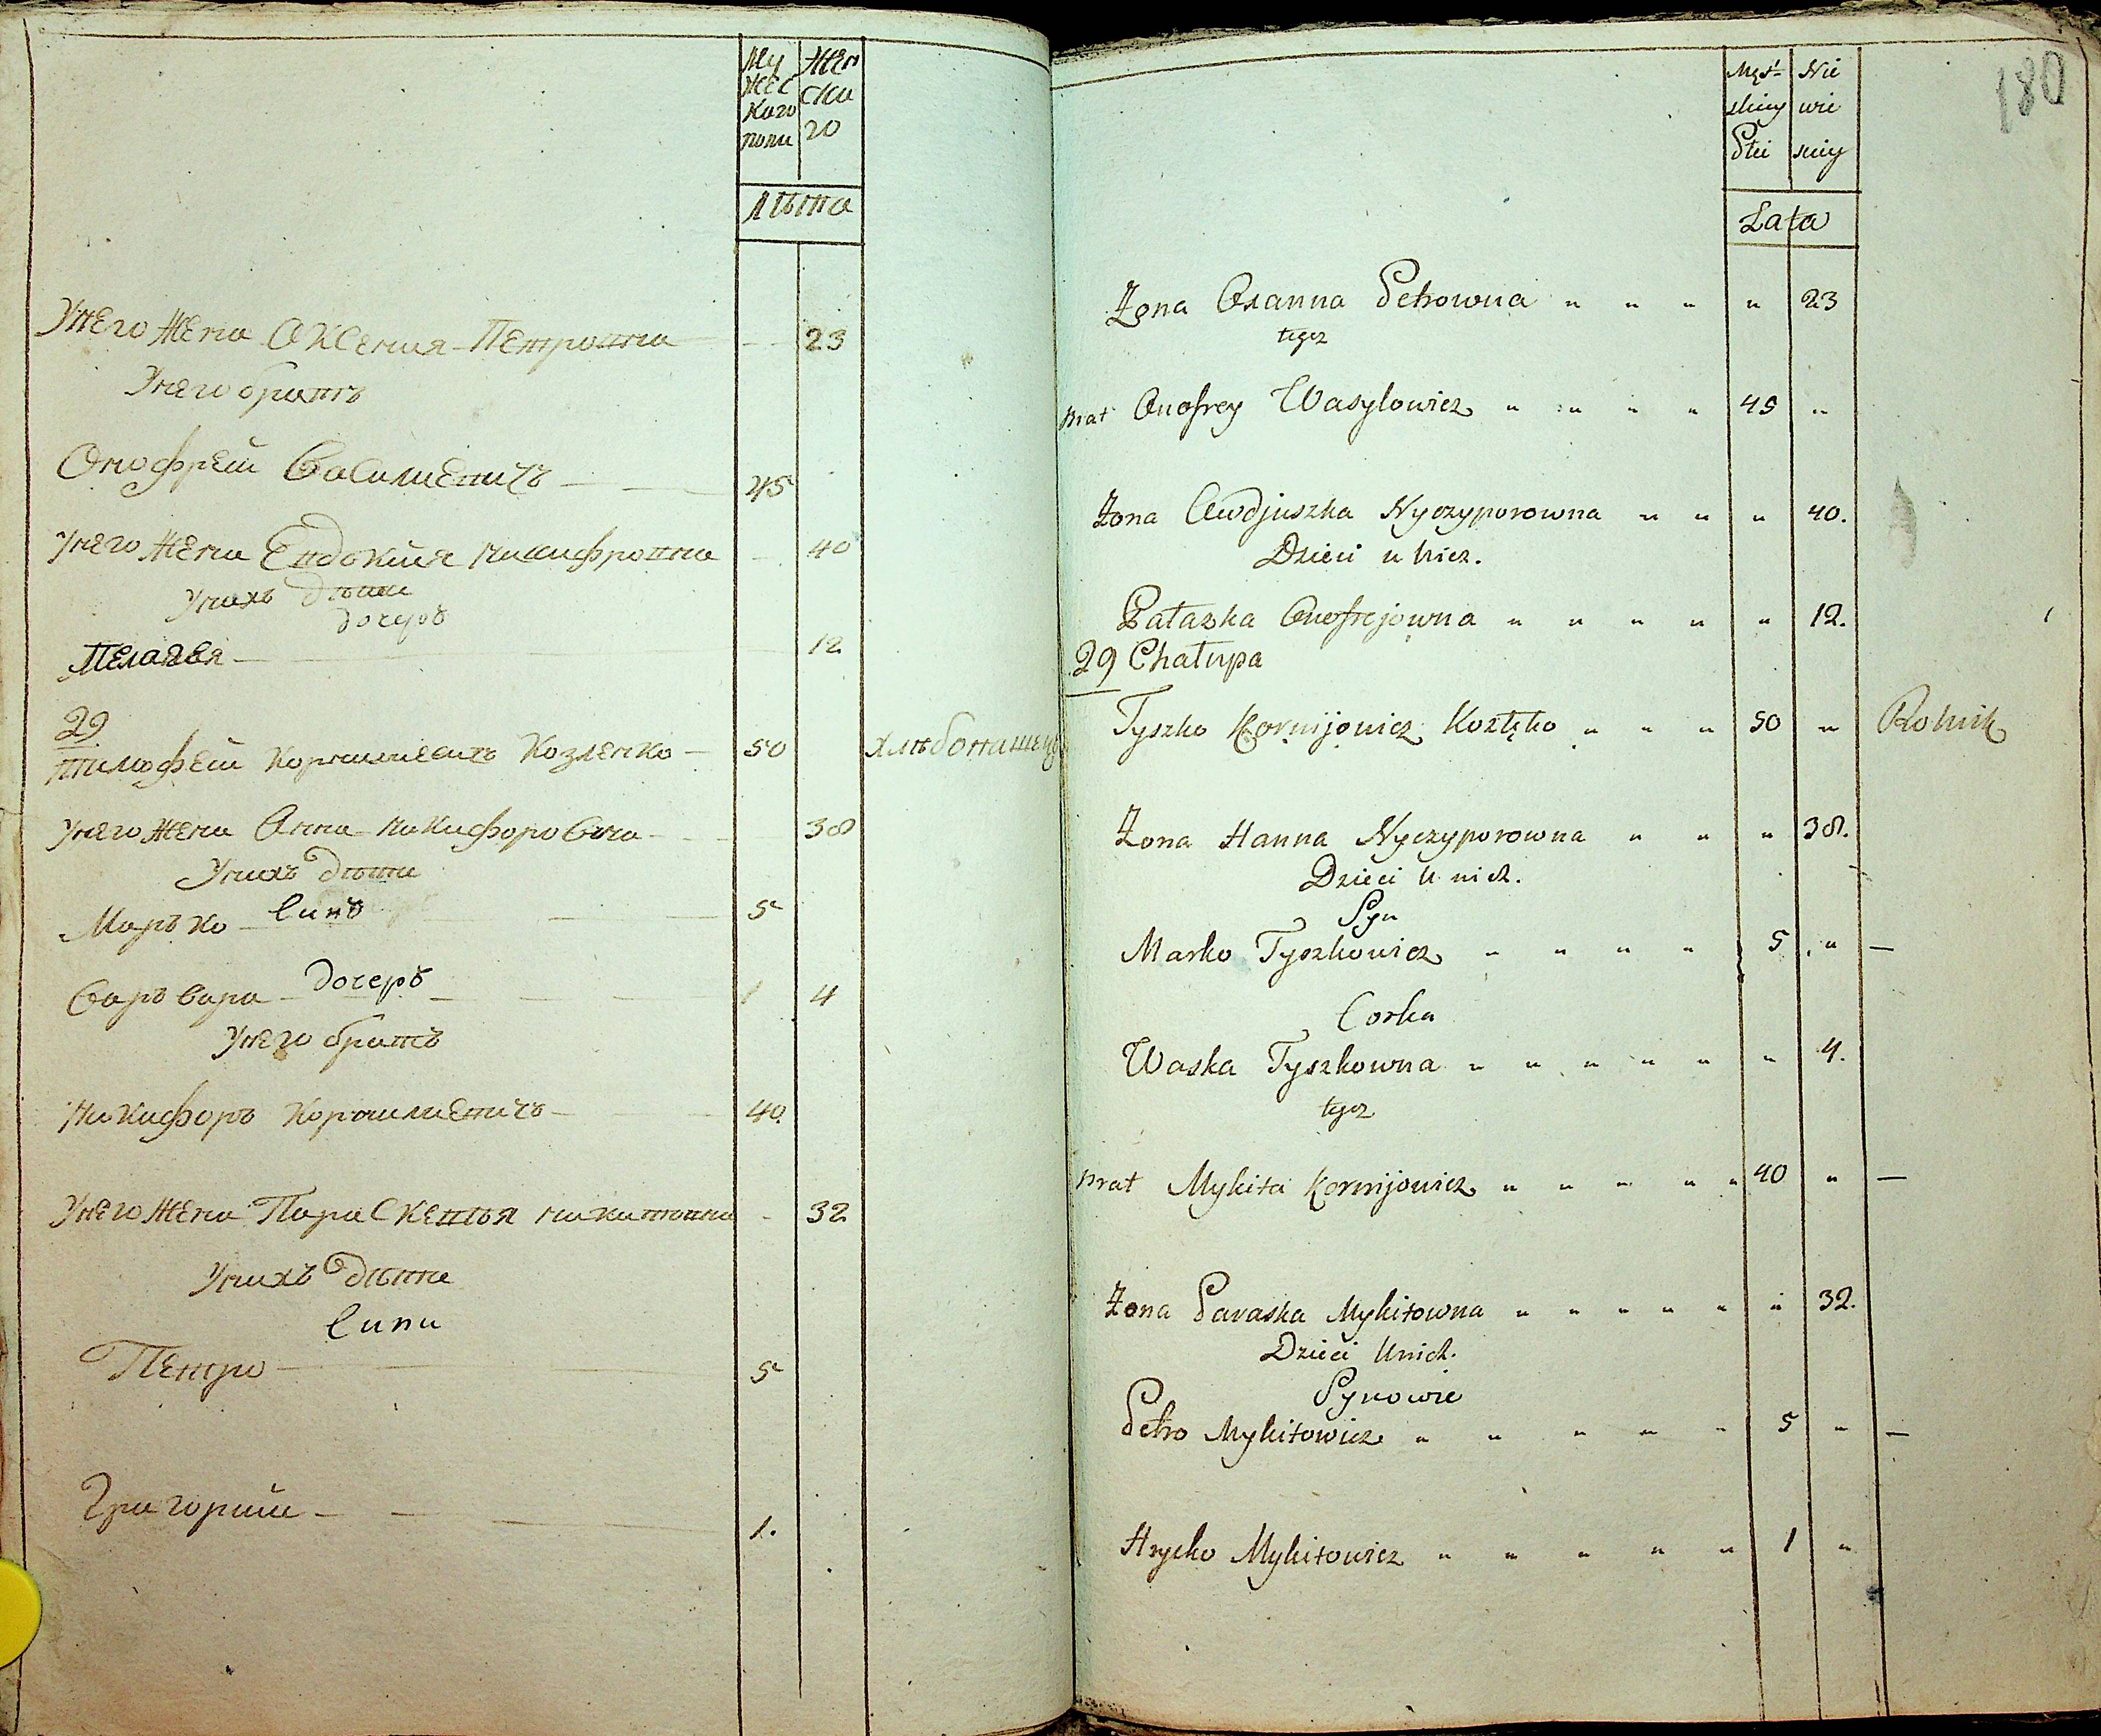 Му Жен
жес ска
каго го
полу
Лѣта
У него жена Аксения Петровна 23
У него братъ
Онофрей Василиевичъ 45
У него жена Евдокия Никифровна 40
У нихъ дѣти
дочерь
Пелагея 12
29
Тимофей Корнилиевичъ Козленко 50 хлѣбопашецъ
У него жена Анна Никифоровна 38
У нихъ дѣти
Марько синъ 5
Варвара дочерь 4
У него братъ
Никифоръ Корнилиевичъ 40.
У него жена Парасkевия Никитовна 32
У нихъ дѣти
сини
Петро 5
Григорий 1.
180
Męs- Nie
skiey wie
Płci sciey
Lata
Żona Oxanna Petrowna " " " " 23
tegoż
Brat Onofrey Wasylowicz " " " " 45 "
Żona Awdjuszka Nyczyporowna " " " 40.
Dzieci u nich.
Pałazka Onofrejowna " " " " " 12.
29 Chałupa
Tyszko Kornijowicz Kozłęko " " " 50 " Rolnik
Żona Hanna Nyczyporowna " " " 38.
Dzieci u nich.
Syn
Marko Tyszkowicz " " " " 5 " —
Corka
Waska Tyszkowna " " " " " " 4.
tegoż
Brat Mykita Kornijowicz " " " " " 40 " —
Żona Paraska Mykitowna " " " " " " 32.
Dzieci u nich.
Synowie
Petro Mykitowicz " " " " " 5 " —
Hrycko Mykitowicz " " " " " 1 "